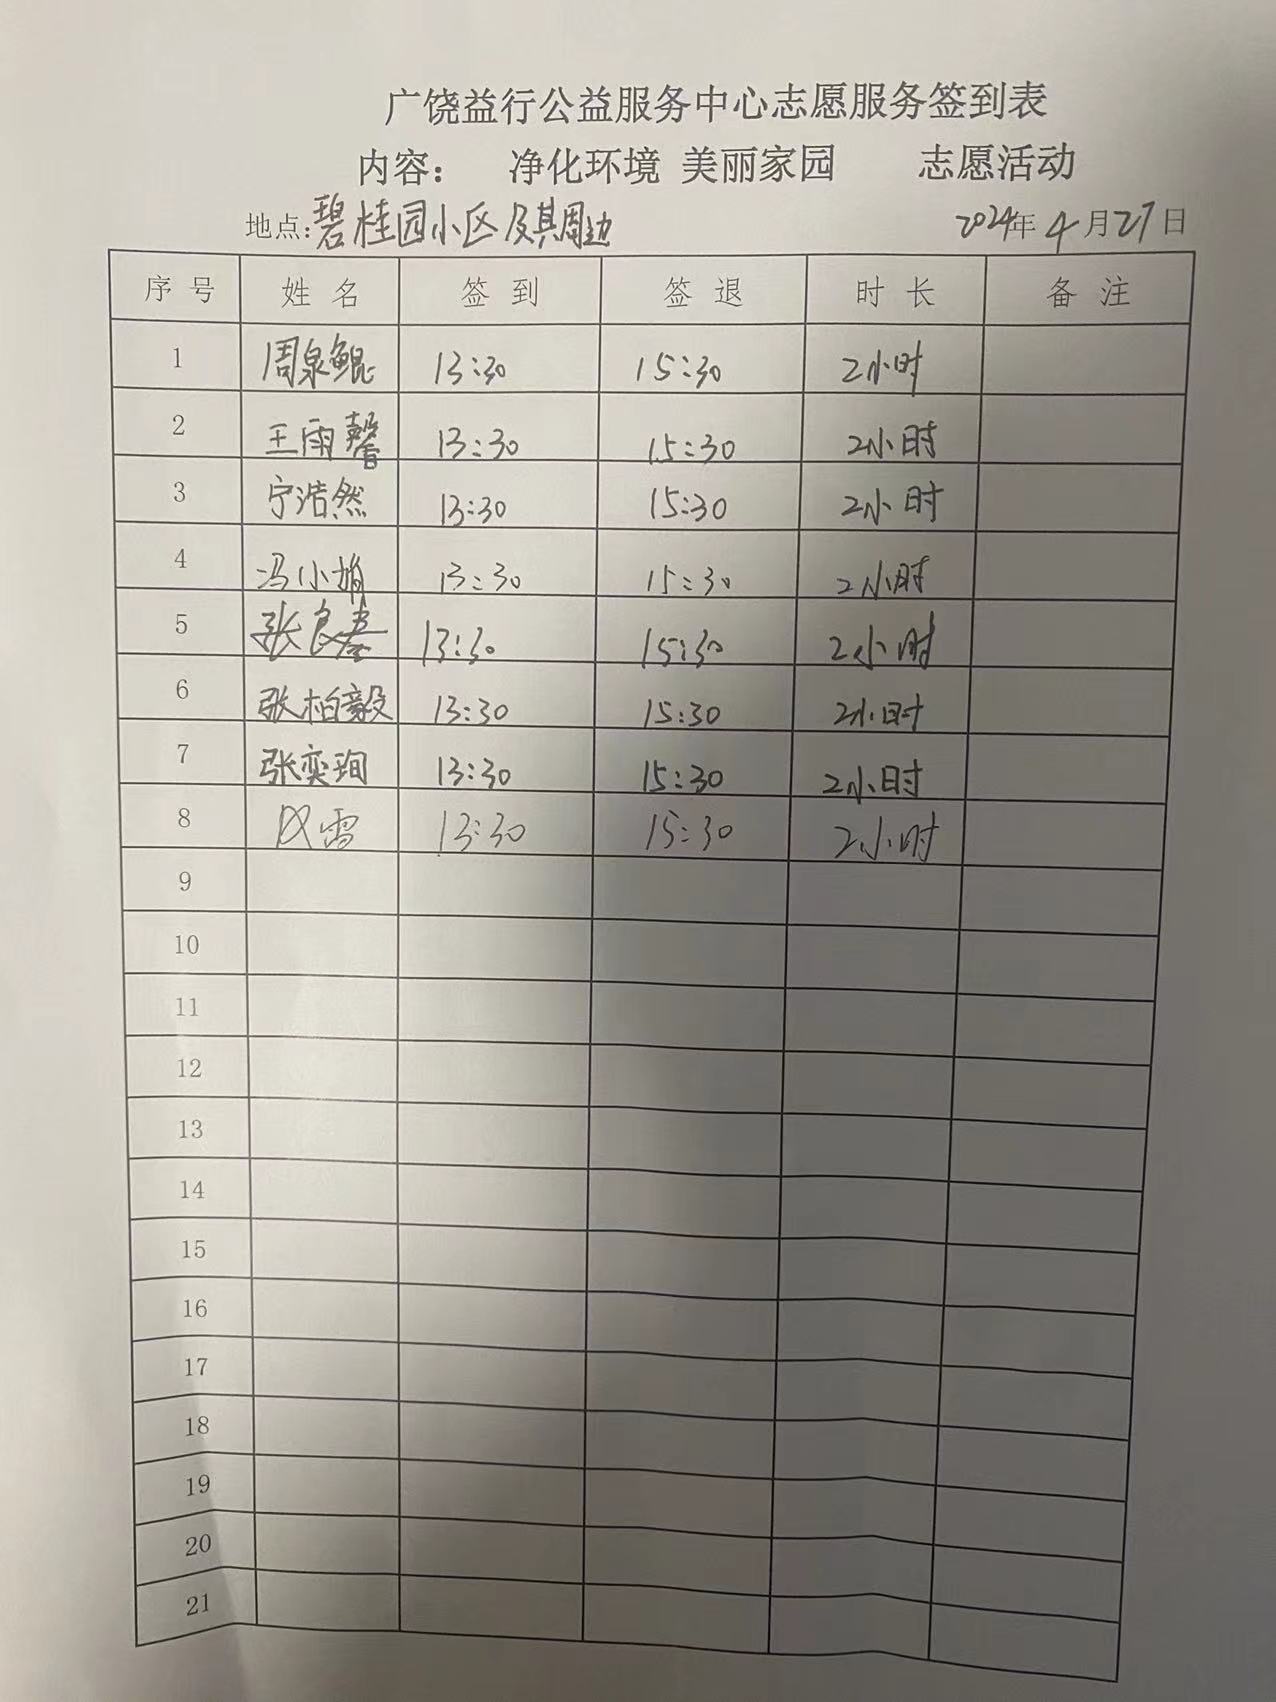 广饶益行公益服务中心志愿服务签到表
内容： 净化环境 美丽家园 志愿活动
地点：碧桂园小区及其周边 2024年4月27日
序号 姓名 签到 签退 时长 备注
1 周泉鲲 13:30 15:30 2小时
2 王雨馨 13:30 15:30 2小时
3 宁浩然 13:30 15:30 2小时
4 冯小娟 13:30 15:30 2小时
5 张良泰 13:30 15:30 2小时
6 张柏毅 13:30 15:30 2小时
7 张奕珣 13:30 15:30 2小时
8 风雷 13:30 15:30 2小时
9
10
11
12
13
14
15
16
17
18
19
20
21